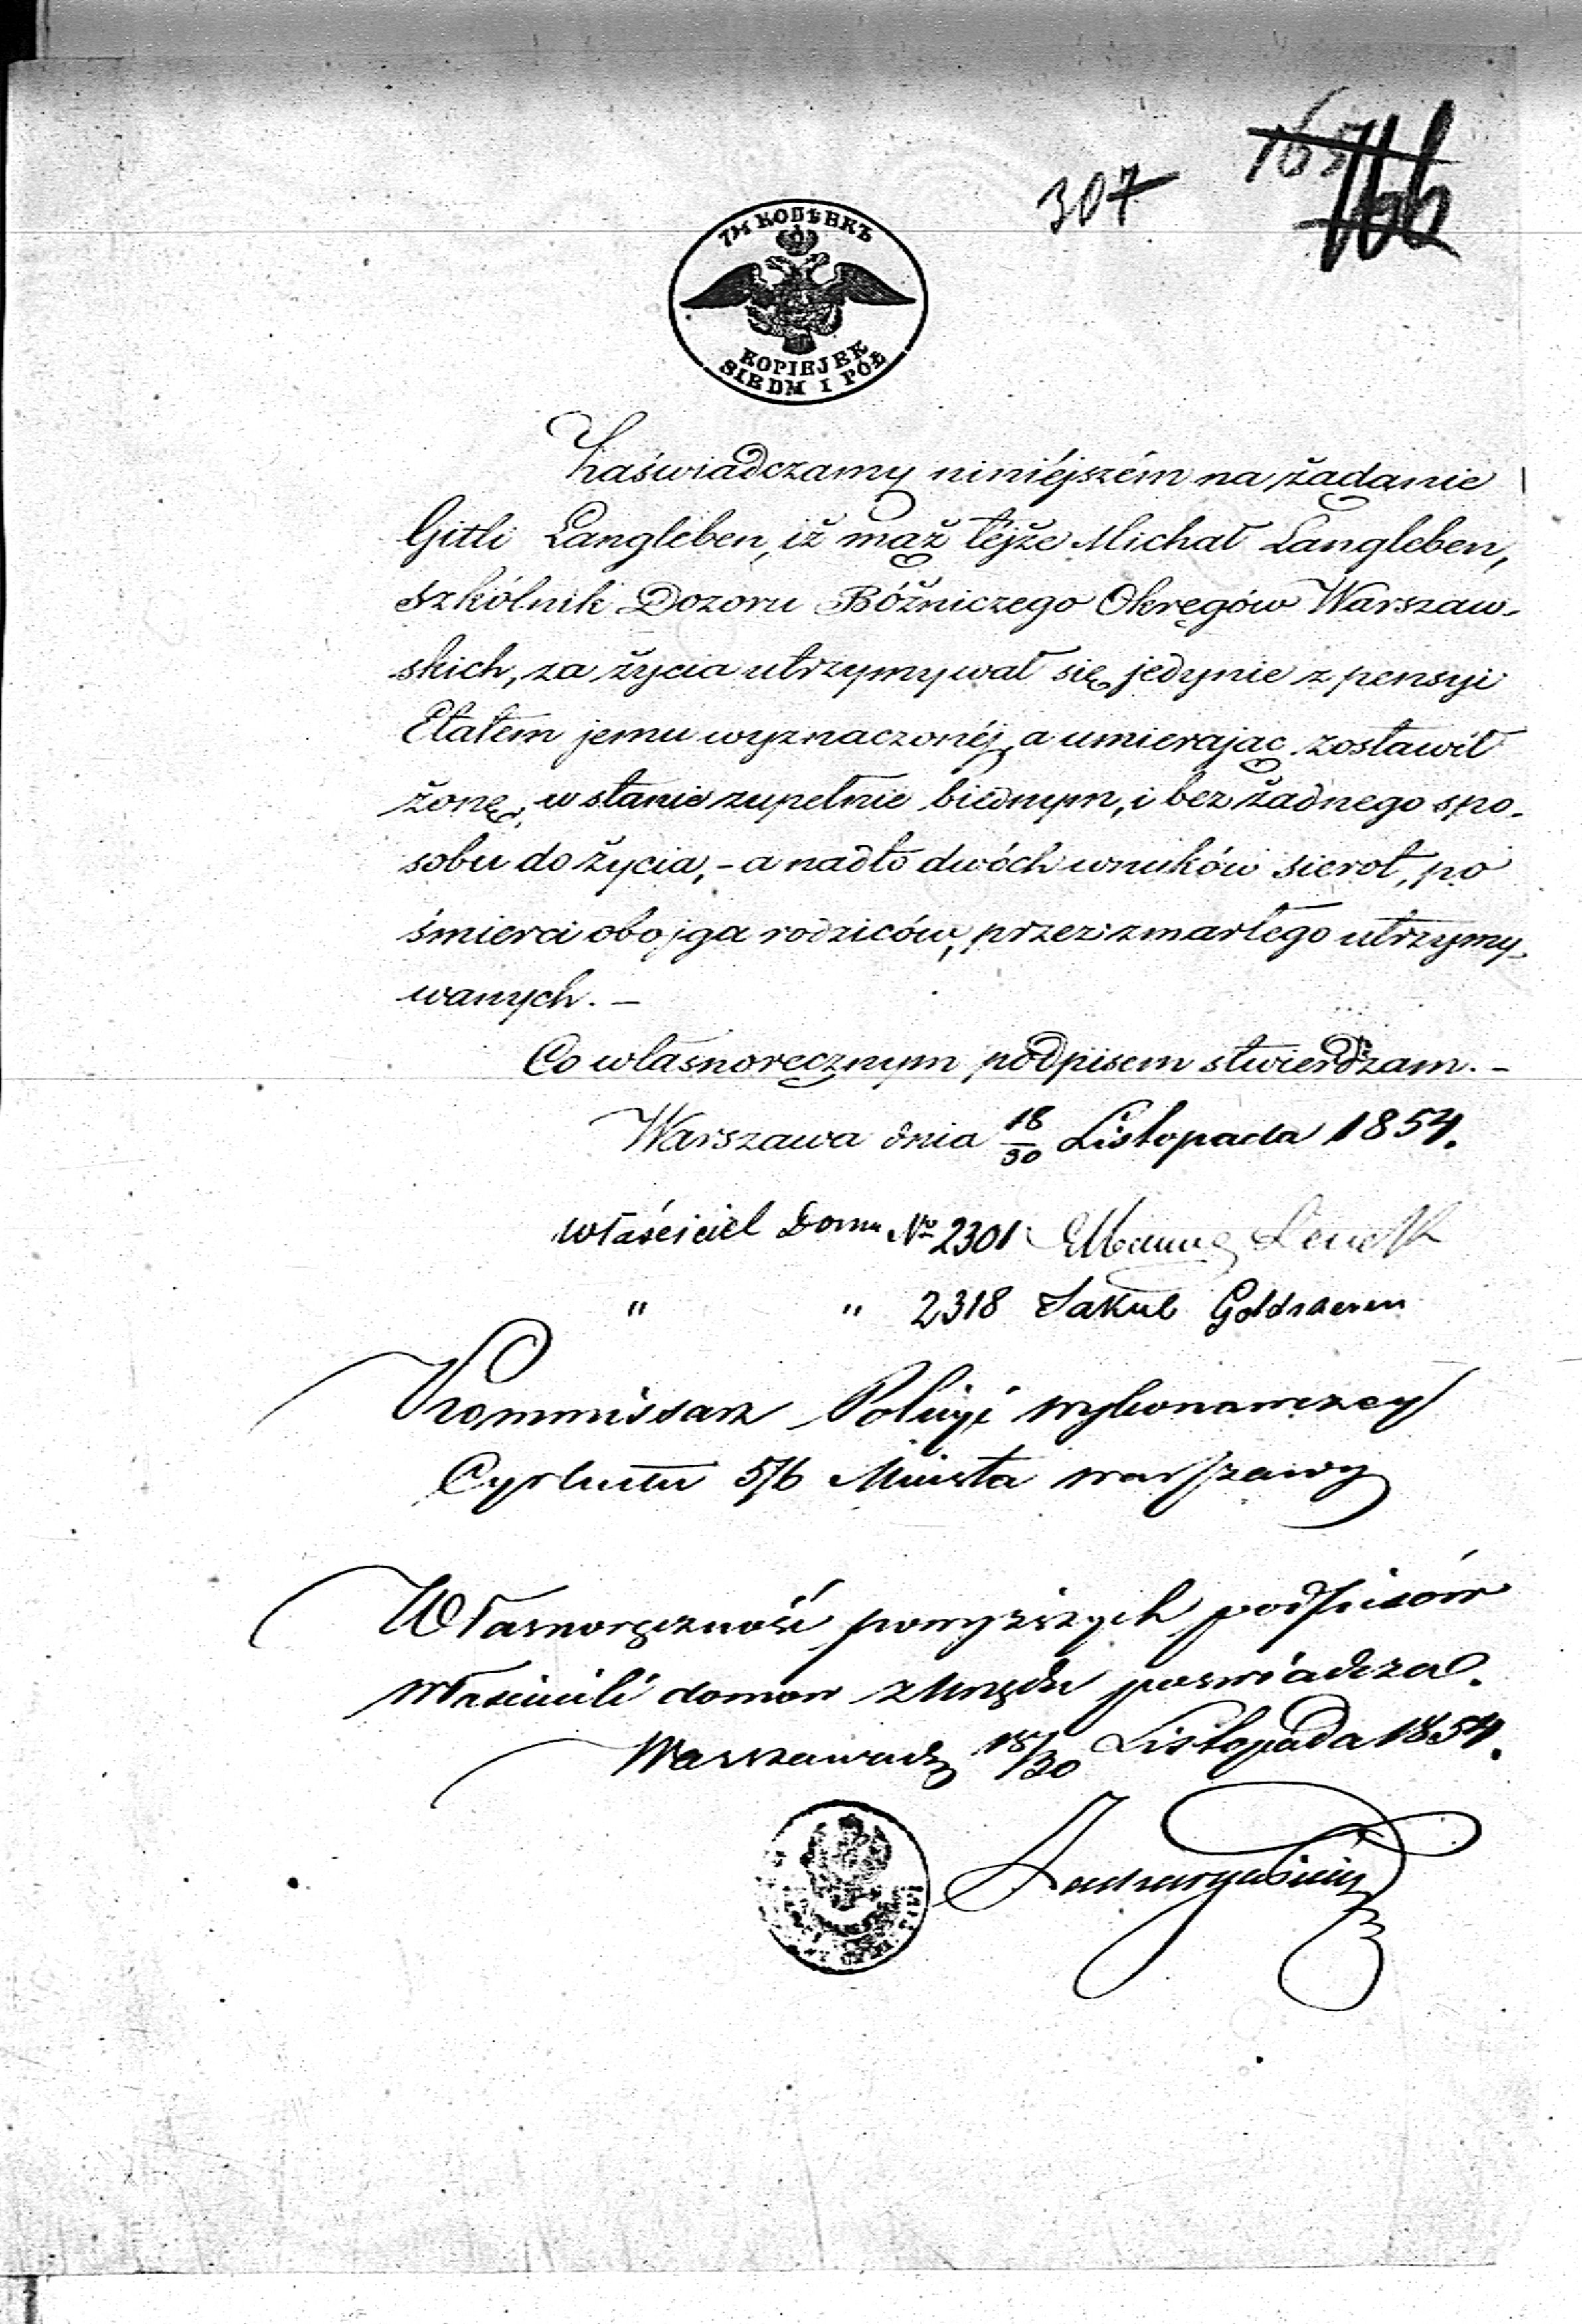 307
165
166
7½ КОПѢЕКЪ
KOPIEJEK
SIEDM I PÓŁ
Zaświadczamy niniéjszém na żądanie
Gitli Langleben, iż mąż téjże Michał Langleben,
szkólnik Dozoru Bóżniczego Okręgów Warszaw-
skich, za życia utrzymywał się jedynie z pensyi
Etatem jemu wyznaczonéj, a umierając zostawił
żonę, w stanie zupełnie biédnym, i bez żadnego spo-
sobu do życia, - a nadto dwóch wnuków sierot, po
śmierci obojga rodziców, przez zmarłego utrzymy-
wanych. -
Co własnoręcznym podpisem stwierdzam. -
Warszawa dnia 18/30 Listopada 1854.
Właściciel Domu No 2301
" " 2318 Jakub
Kommissarz Policyi wykonawczey
Cyrkułu 5/6 Miasta Warszawy
Własnoręczność powyższych podpisów
właścicieli domow z urzędu poswiadcza.
Warszawa d 18/30 Listopada 1854.